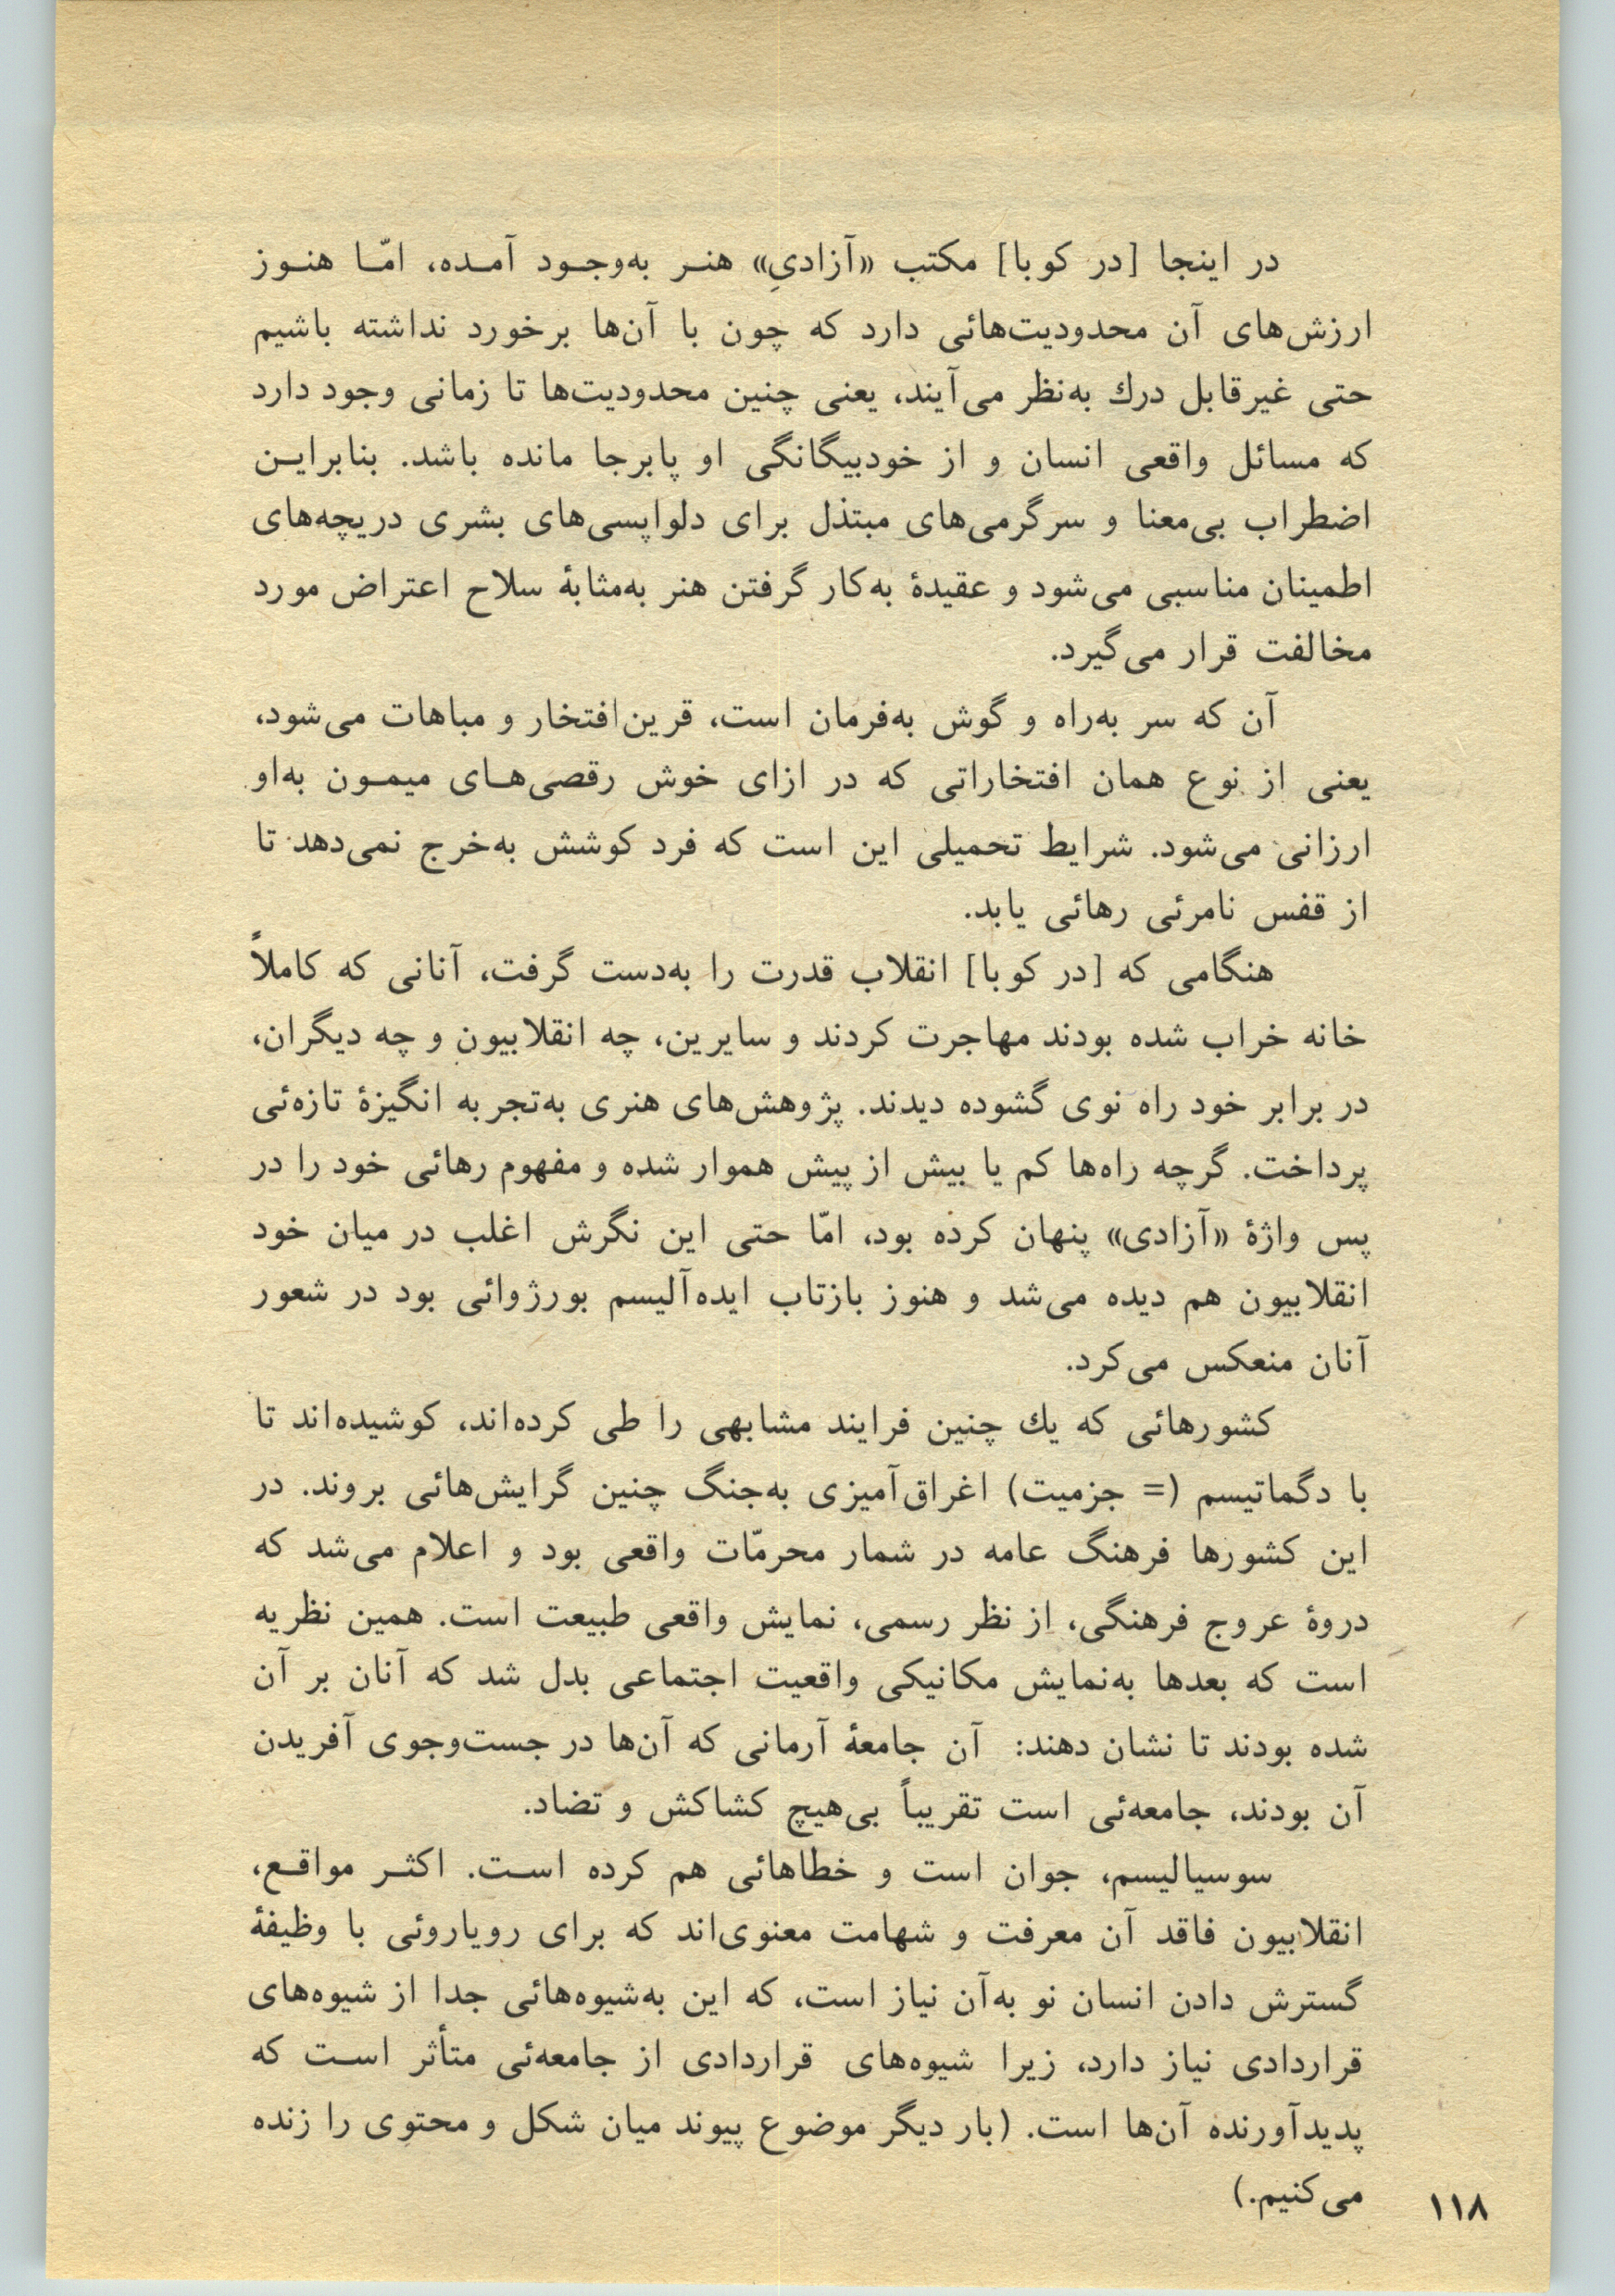 در اینجا [در کوبا] مکتب «آزادیِ» هنر به‌وجود آمده، امّا هنوز
ارزش‌های آن محدودیت‌هائی دارد که چون با آن‌ها برخورد نداشته باشیم
حتی غیرقابل درك به‌نظر می‌آیند، یعنی چنین محدودیت‌ها تا زمانی وجود دارد
که مسائل واقعی انسان و از خودبیگانگی او پابرجا مانده باشد. بنابراین
اضطراب بی‌معنا و سرگرمی‌های مبتذل برای دلواپسی‌های بشری دریچه‌های
اطمینان مناسبی می‌شود و عقیدهٔ به‌کار گرفتن هنر به‌مثابهٔ سلاح اعتراض مورد
مخالفت قرار می‌گیرد.
آن که سر به‌راه و گوش به‌فرمان است، قرین‌افتخار و مباهات می‌شود،
یعنی از نوع همان افتخاراتی که در ازای خوش رقصی‌های میمون به‌او
ارزانی می‌شود. شرایط تحمیلی این است که فرد کوشش به‌خرج نمی‌دهد تا
از قفس نامرئی رهائی یابد.
هنگامی که [در کوبا] انقلاب قدرت را به‌دست گرفت، آنانی که کاملاً
خانه خراب شده بودند مهاجرت کردند و سایرین، چه انقلابیون و چه دیگران،
در برابر خود راه نوی گشوده دیدند. پژوهش‌های هنری به‌تجربه انگیزهٔ تازه‌ئی
پرداخت. گرچه راه‌ها کم یا بیش از پیش هموار شده و مفهوم رهائی خود را در
پس واژهٔ «آزادی» پنهان کرده بود، امّا حتی این نگرش اغلب در میان خود
انقلابیون هم دیده می‌شد و هنوز بازتاب ایده‌آلیسم بورژوائی بود در شعور
آنان منعکس می‌کرد.
کشورهائی که یك چنین فرایند مشابهی را طی کرده‌اند، کوشیده‌اند تا
با دگماتیسم (= جزمیت) اغراق‌آمیزی به‌جنگ چنین گرایش‌هائی بروند. در
این کشورها فرهنگ عامه در شمار محرمّات واقعی بود و اعلام می‌شد که
دروهٔ عروج فرهنگی، از نظر رسمی، نمایش واقعی طبیعت است. همین نظریه
است که بعدها به‌نمایش مکانیکی واقعیت اجتماعی بدل شد که آنان بر آن
شده بودند تا نشان دهند: آن جامعهٔ آرمانی که آن‌ها در جست‌وجوی آفریدن
آن بودند، جامعه‌ئی است تقریباً بی‌هیچ کشاکش و تضاد.
سوسیالیسم، جوان است و خطاهائی هم کرده است. اکثر مواقع،
انقلابیون فاقد آن معرفت و شهامت معنوی‌اند که برای رویاروئی با وظیفهٔ
گسترش دادن انسان نو به‌آن نیاز است، که این به‌شیوه‌هائی جدا از شیوه‌های
قراردادی نیاز دارد، زیرا شیوه‌های قراردادی از جامعه‌ئی متأثر است که
پدیدآورنده آن‌ها است. (بار دیگر موضوع پیوند میان شکل و محتوی را زنده
می‌کنیم.)
۱۱۸